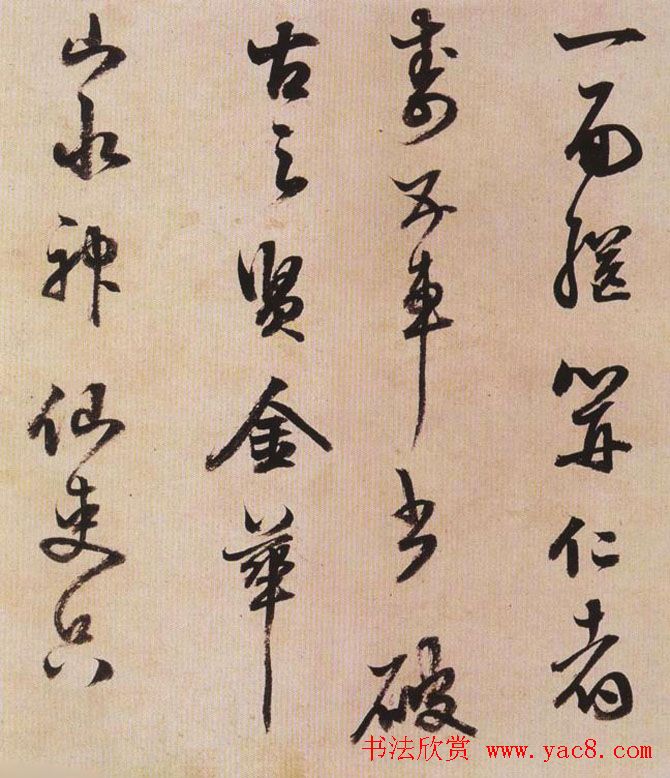 一面仁者
壽五車書破
古之賢金華
山水神仙吏只
书法欣赏 www.yac8.com